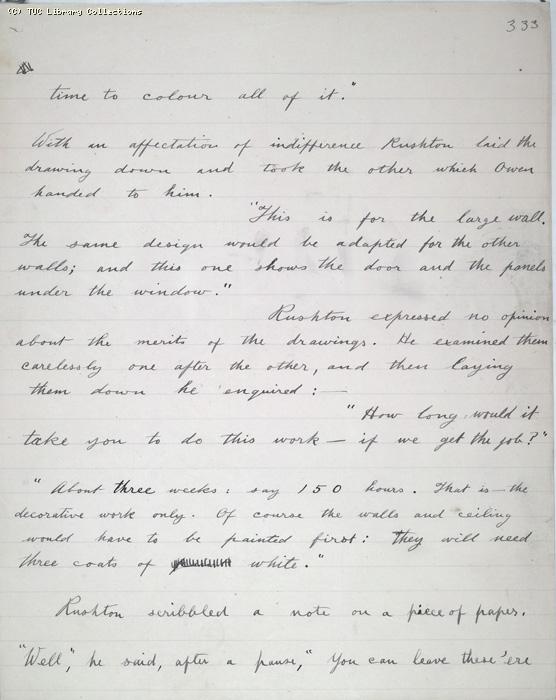 (C) TUC Library Collections
333
time to colour all of it."
With an affectation of indifference Rushton laid the
drawing down and took the other which Owen
handed to him.
"This is for the large wall.
The same design would be adapted for the other
walls; and this one shows the door and the panels
under the window."
Rushton expressed no opinion
about the merits of the drawings. He examined them
carelessly one after the other, and then laying
them down he enquired:—
"How long would it
take you to do this work — if we get the job?"
"About three weeks: say 150 hours. That is — the
decorative work only. Of course the walls and ceiling
would have to be painted first: They will need
three coats of white."
Rushton scribbled a note on a piece of paper.
"Well", he said, after a pause, "You can leave these 'ere